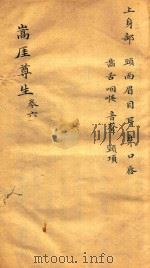 上身部 頭面眉目耳鼻口唇
齒舌咽喉 音聲 頸項
嵩厓尊生 卷六
mtoou.info